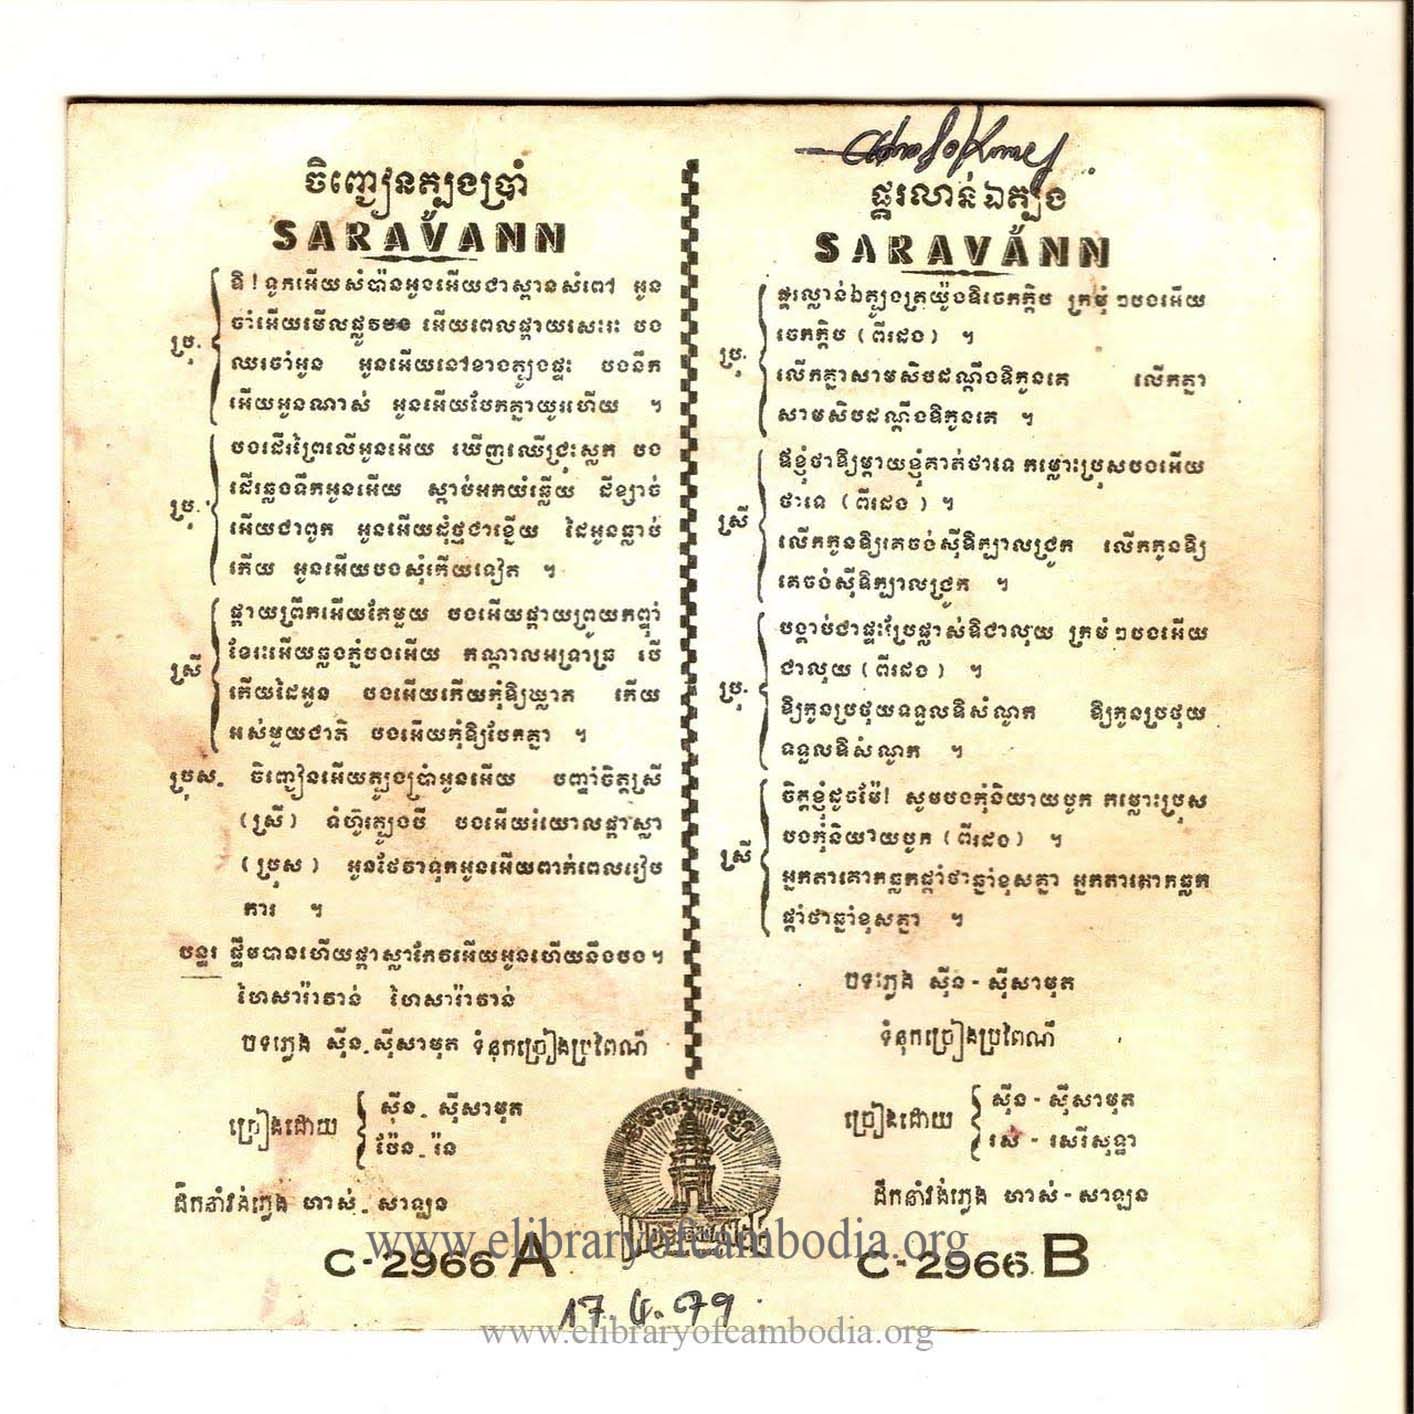 ចិញ្ចៀនត្បូងប្រាំ
SARAVANN
ប្រុ.
ឱ! ទូកអើយសំប៉ានអូងអើយជាស្ពានសំពៅ អូន
ចាំអើយមើលផ្លូវបង អើយពេលផ្កាយរសេះរះ បង
ឈរចាំអូន អូនអើយនៅខាងត្បូងផ្ទះ បងនឹក
អើយអូនណាស់ អូនអើយបែកគ្នាយូរហើយ ។
ប្រុ.
បងដើរព្រៃលើអូនអើយ ឃើញឈើជ្រុះស្លឹក បង
ដើរឆ្លងទឹកអូនអើយ ស្តាប់អកយំឆ្លើយ ដីខ្សាច់
អើយជាពូក អូនអើយដុំថ្មជាខ្នើយ ដៃអូនធ្លាប់
កើយ អូនអើយបងសុំកើយទៀត ។
ស្រី
ផ្កាយព្រឹកអើយតែមួយ បងអើយផ្កាយព្រួយកព្ជាំ
ខែរះអើយឆ្លងភ្នំបងអើយ កណ្តាលអទ្រាត្រ បើ
កើយដៃអូន បងអើយកើយកុំឱ្យឃ្លាត កើយ
អស់មួយជាតិ បងអើយកុំឱ្យបែកគ្នា ។
ប្រុស. ចិញ្ចៀនអើយត្បូងប្រាំអូនអើយ បញ្ចាំចិត្តស្រី
(ស្រី) ទំហ៊ូរត្បូងបី បងអើយរំយោលផ្កាស្លា
(ប្រុស) អូនថែវាទុកអូនអើយពាក់ពេលរៀប
ការ ។
បន្ទរ ផ្ទឹមបានហើយផ្កាស្លាកែវអើយអូនហើយនឹងបង។
ហៃសារ៉ាវាន់ ហៃសារ៉ាវាន់
បទភ្លេង ស៊ីន.ស៊ីសាមុត ទំនុកច្រៀងប្រពៃណី
ច្រៀងដោយ
ស៊ីន. ស៊ីសាមុត
ប៉ែន. រ៉ន
ដឹកនាំវង់ភ្លេង ហាស់. សាឡន
C-2966 A
ផ្គរលាន់ឯត្បូង
SARAVANN
ប្រុ.
ផ្គរល្លាន់ឯត្បូងត្រយ៉ូងឱចេកក្តិប ក្រមុំៗបងអើយ
ចេកក្តិប (ពីរដង) ។
លើកគ្នាសាមសិបដណ្តឹងឱកូនគេ លើកគ្នា
សាមសិបដណ្តឹងឱកូនគេ ។
ស្រី
ឪខ្ញុំថាឱ្យម្តាយខ្ញុំគាត់ថាទេ កម្លោះប្រុសបងអើយ
ថាទេ (ពីរដង) ។
លើកកូនឱ្យគេចង់ស៊ីឱក្បាលជ្រូក លើកកូនឱ្យ
គេចង់ស៊ីឱក្បាលជ្រូក ។
ប្រុ.
បង្គាប់ជាផ្ទះប្រែផ្លាស់ឱជាលុយ ក្រមុំៗបងអើយ
ជាលុយ (ពីរដង) ។
ឱ្យកូនប្រថុយទទួលឱសំណូក ឱ្យកូនប្រថុយ
ទទួលឱសំណូក ។
ស្រី
ចិត្តខ្ញុំដូចម៉ែ! សូមបងកុំនិយាយបូក កម្លោះប្រុស
បងកុំនិយាយបូក (ពីរដង) ។
អ្នកតាគោកធ្លកផ្តាំថាឆ្នាំខុសគ្នា អ្នកតាគោកធ្លក
ផ្តាំថាឆ្នាំខុសគ្នា ។
បទភ្លេង ស៊ីន-ស៊ីសាមុត
ទំនុកច្រៀងប្រពៃណី
ច្រៀងដោយ
ស៊ីន-ស៊ីសាមុត
រស់-សេរីសុទ្ធា
ដឹកនាំវង់ភ្លេង ហាស់-សាឡន
C-2966 B
17.4.79
www.elibraryofcambodia.org
www.elibraryofcambodia.org